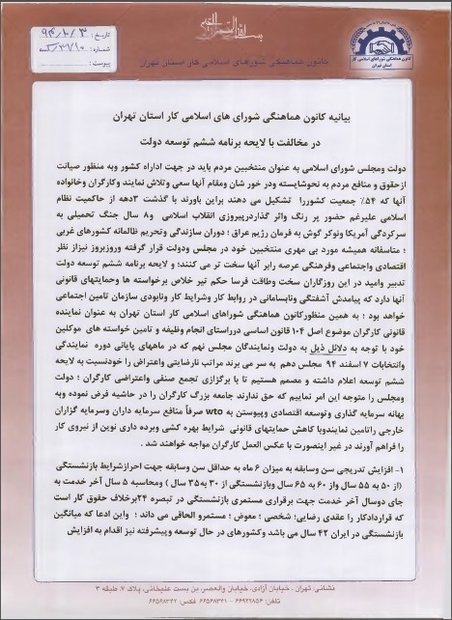 بسم الله الرحمن الرحیم
تاریخ:
شماره:
پیوست:
کانون هماهنگی شورای اسلامی کار
استان تهران
کانون هماهنگی شورهای اسلامی کار استان تهران
بیانیه کانون هماهنگی شورای های اسلامی کار استان تهران
در مخالفت با لایحه برنامه ششم توسعه دولت
دولت ومجلس شورای اسلامی به عنوان منتخبین مردم باید در جهت اداراه کشور وبه منظور صیانت
ازحقوق و منافع مردم به نحوشایسته ودر خور شان ومقام آنها سعی وتلاش نمایند وکارگران وخانواده
آنها که ۵۴٪ جمعیت کشوررا تشکیل می دهند براین باورند با گذشت ۳دهه از حاکمیت نظام
اسلامی علیرغم حضور پر رنگ واثر گذاردرپیروزی انقلاب اسلامی و۸ سال جنگ تحمیلی به
سرکردگی آمریکا ونوکر گوش به فرمان رژیم عراق ؛ دوران سازندگی وتحریم ظالمانه کشورهای غربی
؛ متاسفانه همیشه مورد بی مهری منتخبین خود در مجلس ودولت قرار گرفته وروزبروز نیزاز نظر
اقتصادی واجتماعی وفرهنگی عرصه رابر آنها سخت تر می کنند؛ و لایحه برنامه ششم توسعه دولت
تدبیر وامید در این روزگاران سخت وطاقت فرسا حکم تیر خلاص برخواسته ها وحمایتهای قانونی
آنها دارد که پیامدش آشفتگی ونابسامانی در روابط کار وشرایط کار ونابودی سازمان تامین اجتماعی
خواهد بود ؛ به همین منظورکانون هماهنگی شورهای اسلامی کار استان تهران به عنوان نماینده
قانونی کارگران موضوع اصل ۱۰۴ قانون اساسی درراستای انجام وظیفه و تامین خواسته های موکلین
خود با توجه به دلائل ذیل به دولت ونمایندگان مجلس نهم که در ماههای پایانی دوره نمایندگی
وانتخابات ۷ اسفند ۹۴ مجلس دهم به سر می برند مراتب نارضایتی واعتراض را خودنسبت به لایحه
ششم توسعه اعلام داشته و مصمم هستیم تا با برگزاری تجمع صنفی واعتراضی کارگران ؛ دولت
ومجلس را متوجه این امر نماییم که حق ندارند جامعه بزرگ کارگران را در حاشیه فرض نموده وبه
بهانه سرمایه گذاری وتوسعه اقتصادی وپیوستن به wto صرفاً منافع سرمایه داران وسرمایه گزاران
خارجی راتامین نمایندوبا کاهش حمایتهای قانونی شرایط بهره کشی وبرده داری نوین از نیروی کار
را فراهم آورند در غیر اینصورت با عکس العمل کارگران مواجه خواهند شد .
۱- افزایش تدریجی سن وسابقه به میزان ۶ ماه به حداقل سن وسابقه جهت احرازشرایط بازنشستگی
(از ۵۰ به ۵۵ سال واز ۶۰ به ۶۵ سال وبازنشستگی از ۳۰ به۳۵ سال ) ومحاسبه ۵ سال آخر خدمت به
جای دوسال آخر خدمت جهت برقراری مستمری بازنشستگی در تبصره ۲۴برخلاف حقوق کار است
که قراردادکار را عقدی رضایی؛ شخصی ؛ معوض ؛ مستمرو الحاقی می داند ؛ واین ادعا که میانگین
بازنشستگی در ایران ۴۲ سال می باشد وکشورهای در حال توسعه وپیشرفته نیز اقدام به افزایش
نشانی: تهران . خیابان آزادی، خیابان والعصر، بن بست علیخانی، پلاک ۷، طبقه ۳
تلفن: ۶۶۹۲۲۸۵۶ - ۶۶۵۶۸۳۲۱ فکس: ۶۶۵۶۸۳۲۲